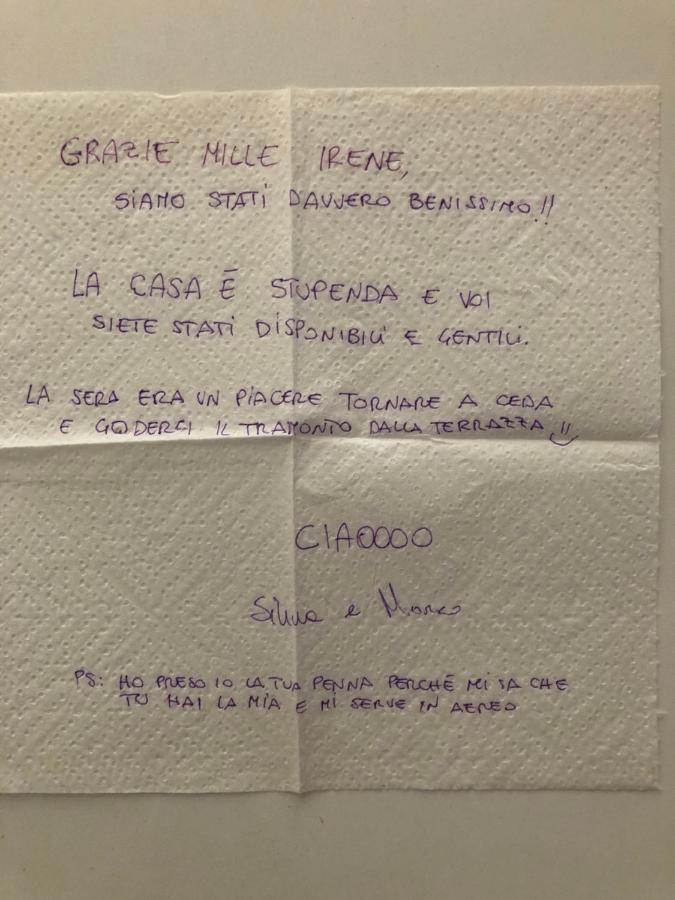 GRAZIE MILLE IRENE,
SIAMO STATI D'AVVERO BENISSIMO!!
LA CASA É STUPENDA E VOI
SIETE STATI DISPONIBILI E GENTILI.
LA SERA ERA UN PIACERE TORNARE A CEDA
E GODERCI IL TRAMONTO DALLA TERRAZZA!!
CIAOOOO
Silvia e Marco
PS: HO PRESO IO LA TUA PENNA PERCHÉ MI SA CHE
TU HAI LA MIA E MI SERVE IN AEREO